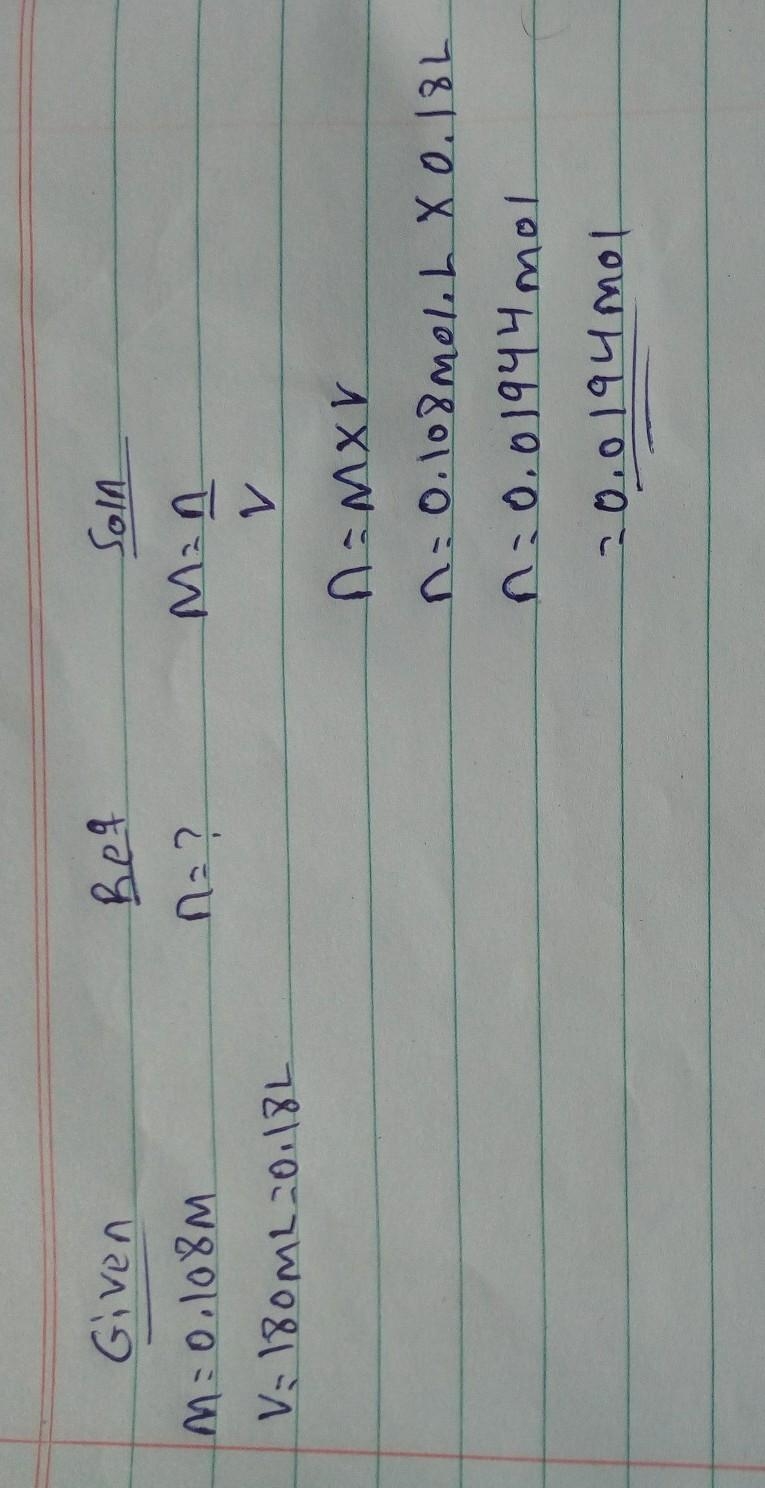 Given Req Soln
M = 0.108M n = ? M = n/V
V = 180mL = 0.18L
n = M x V
n = 0.108mol/L x 0.18L
n = 0.01944 mol
= 0.0194mol